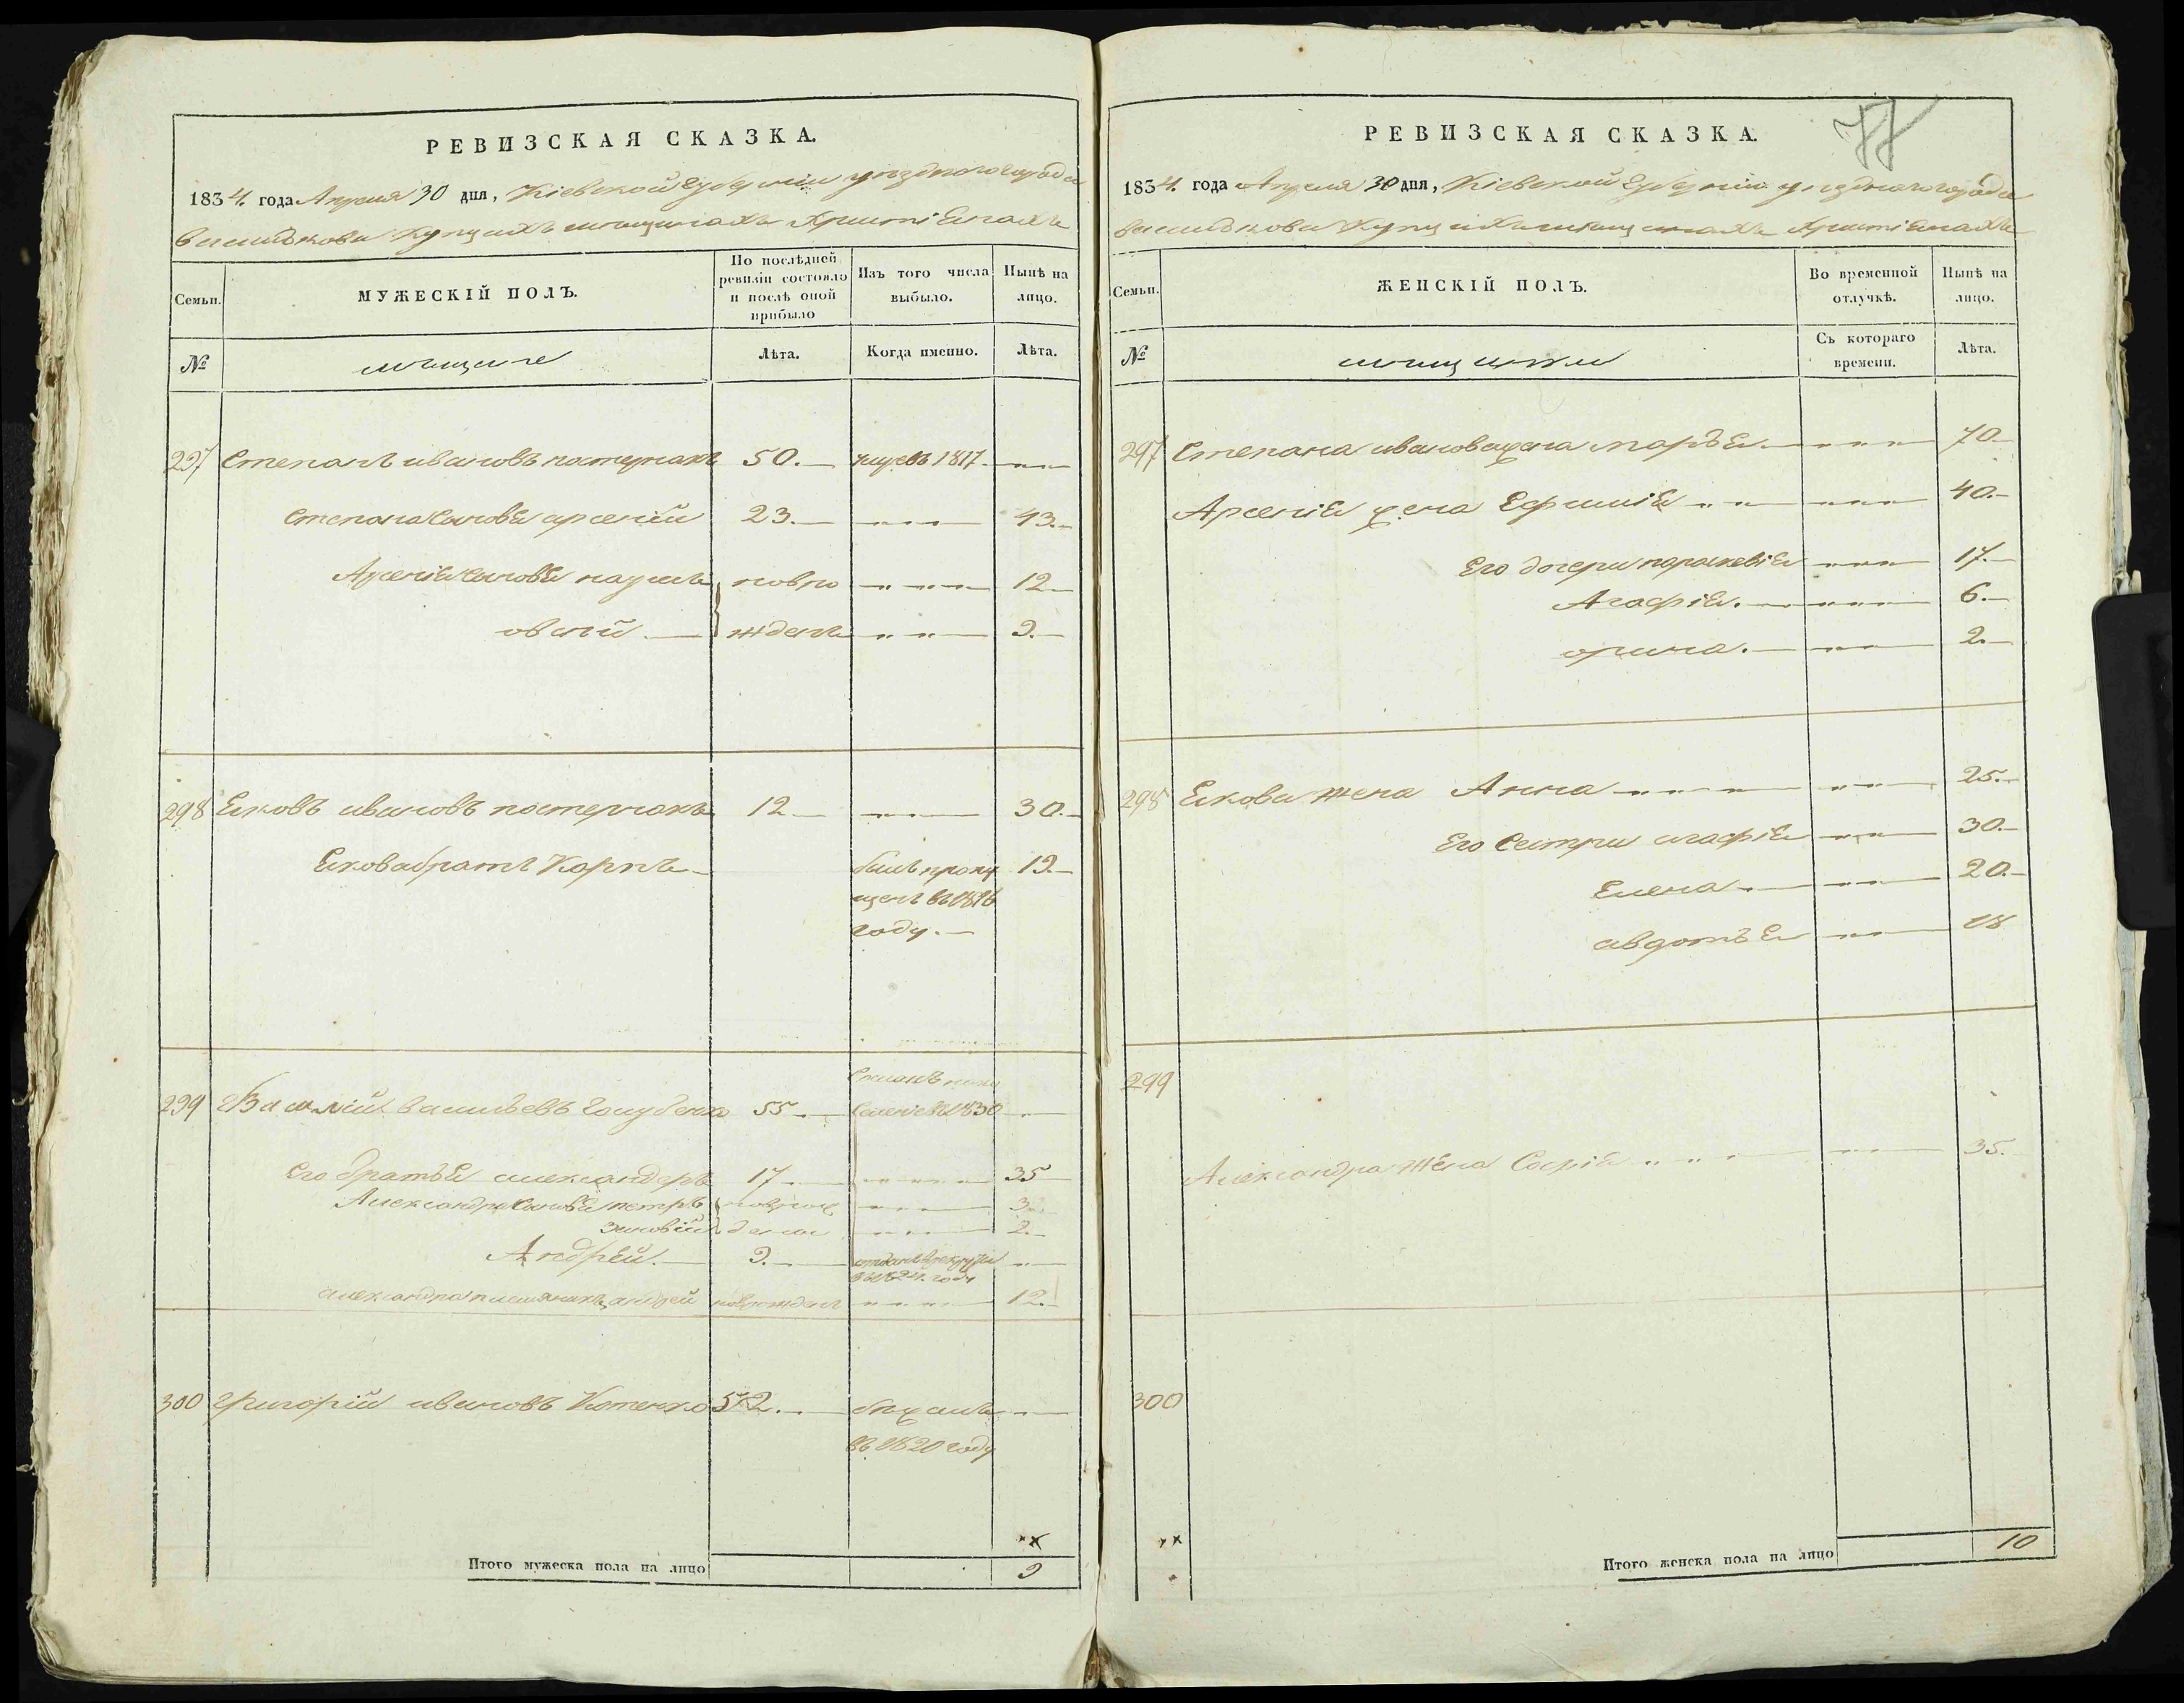 РЕВИЗСКАЯ СКАЗКА.
1834. года Апреля 30 дня, Кіевской Губерніи уезднаго города
Василькова Купцахъ мещанахъ Христіянахъ
Семьи.
МУЖЕСКІЙ ПОЛЪ.
По послѣдней ревизіи состояло и послѣ оной прибыло
Изъ того числа выбыло.
Нынѣ на лицо.
№
мещане
Лѣта.
Когда именно.
Лѣта.
297 Степанъ ивановъ 50. умре въ 1817.
Степана Сыновья арсеній 23. 43.
Арсенія Сыновья наумъ новро 12
овсій жденъ 9.
298 Яковъ ивановъ постернакъ 12 30.
Якова братъ Карпъ былъ пропу 19
щенъ въ 1816
году.
299 Василій васильевъ Голубенко 55. 1830
Его братья александеръ 17 35
Александра Сыновья петръ новрож 3
Зиновій дены 2.
Андрей. 9. отданъ в рекруты
въ 1824. году
александра племяникъ андрей новорожденъ 12.
300 Григорій ивановъ Котенко 52.
въ 1820 году
Итого мужеска пола на лицо 9
РЕВИЗСКАЯ СКАЗКА.
77
1834. года Апреля 30 дня, Кіевской Губерніи уезднаго города
Василькова Купцахъ мещанахъ Христіянахъ
Семьи.
ЖЕНСКІЙ ПОЛЪ.
Во временной отлучкѣ.
Нынѣ на лицо.
№
мещанки
Съ котораго времени.
Лѣта.
297 Степана иванова жена марья 70
Арсенія жена Ефимія 40.
Его дочери параскевія 17.
Агафія. 6.
орина. 2.
298 Якова жена Анна 25.
Его Сестры агафія 30.
Елена 20.
авдотья 18
299
Александра жена Софія 35.
300
Итого женска пола на лицо 10